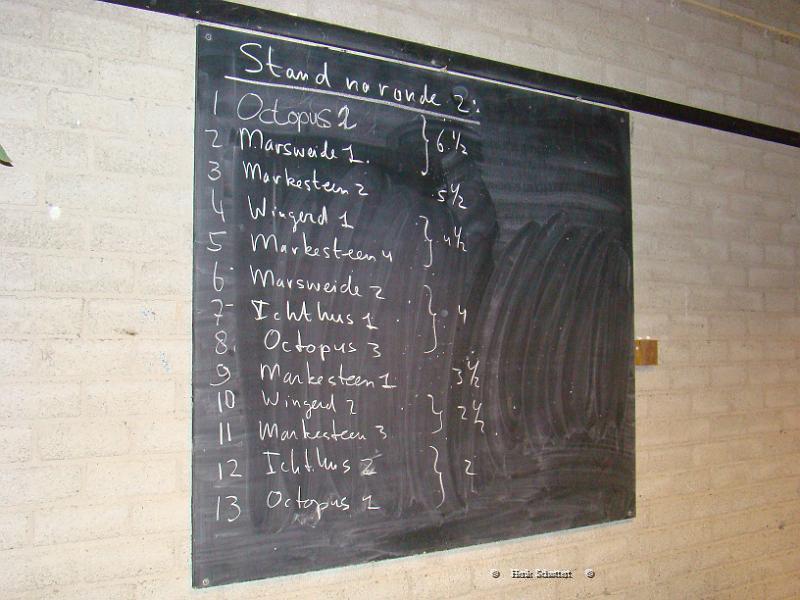 Stand na ronde 2:
1 Octopus 2
2 Marsweide 1. } 6 1/2
3 Markesteen 2 5 1/2
4 Wingerd 1
5 Markesteen 4 } 4 1/2
6 Marsweide 2
7 Ichthus 1 } 4
8. Octopus 3
9 Markesteen 1 3 1/2
10 Wingerd 2
11 Markesteen 3 } 2 1/2
12 Ichthus 2
13 Octopus 1 } 2
© Henk Schuttert ©